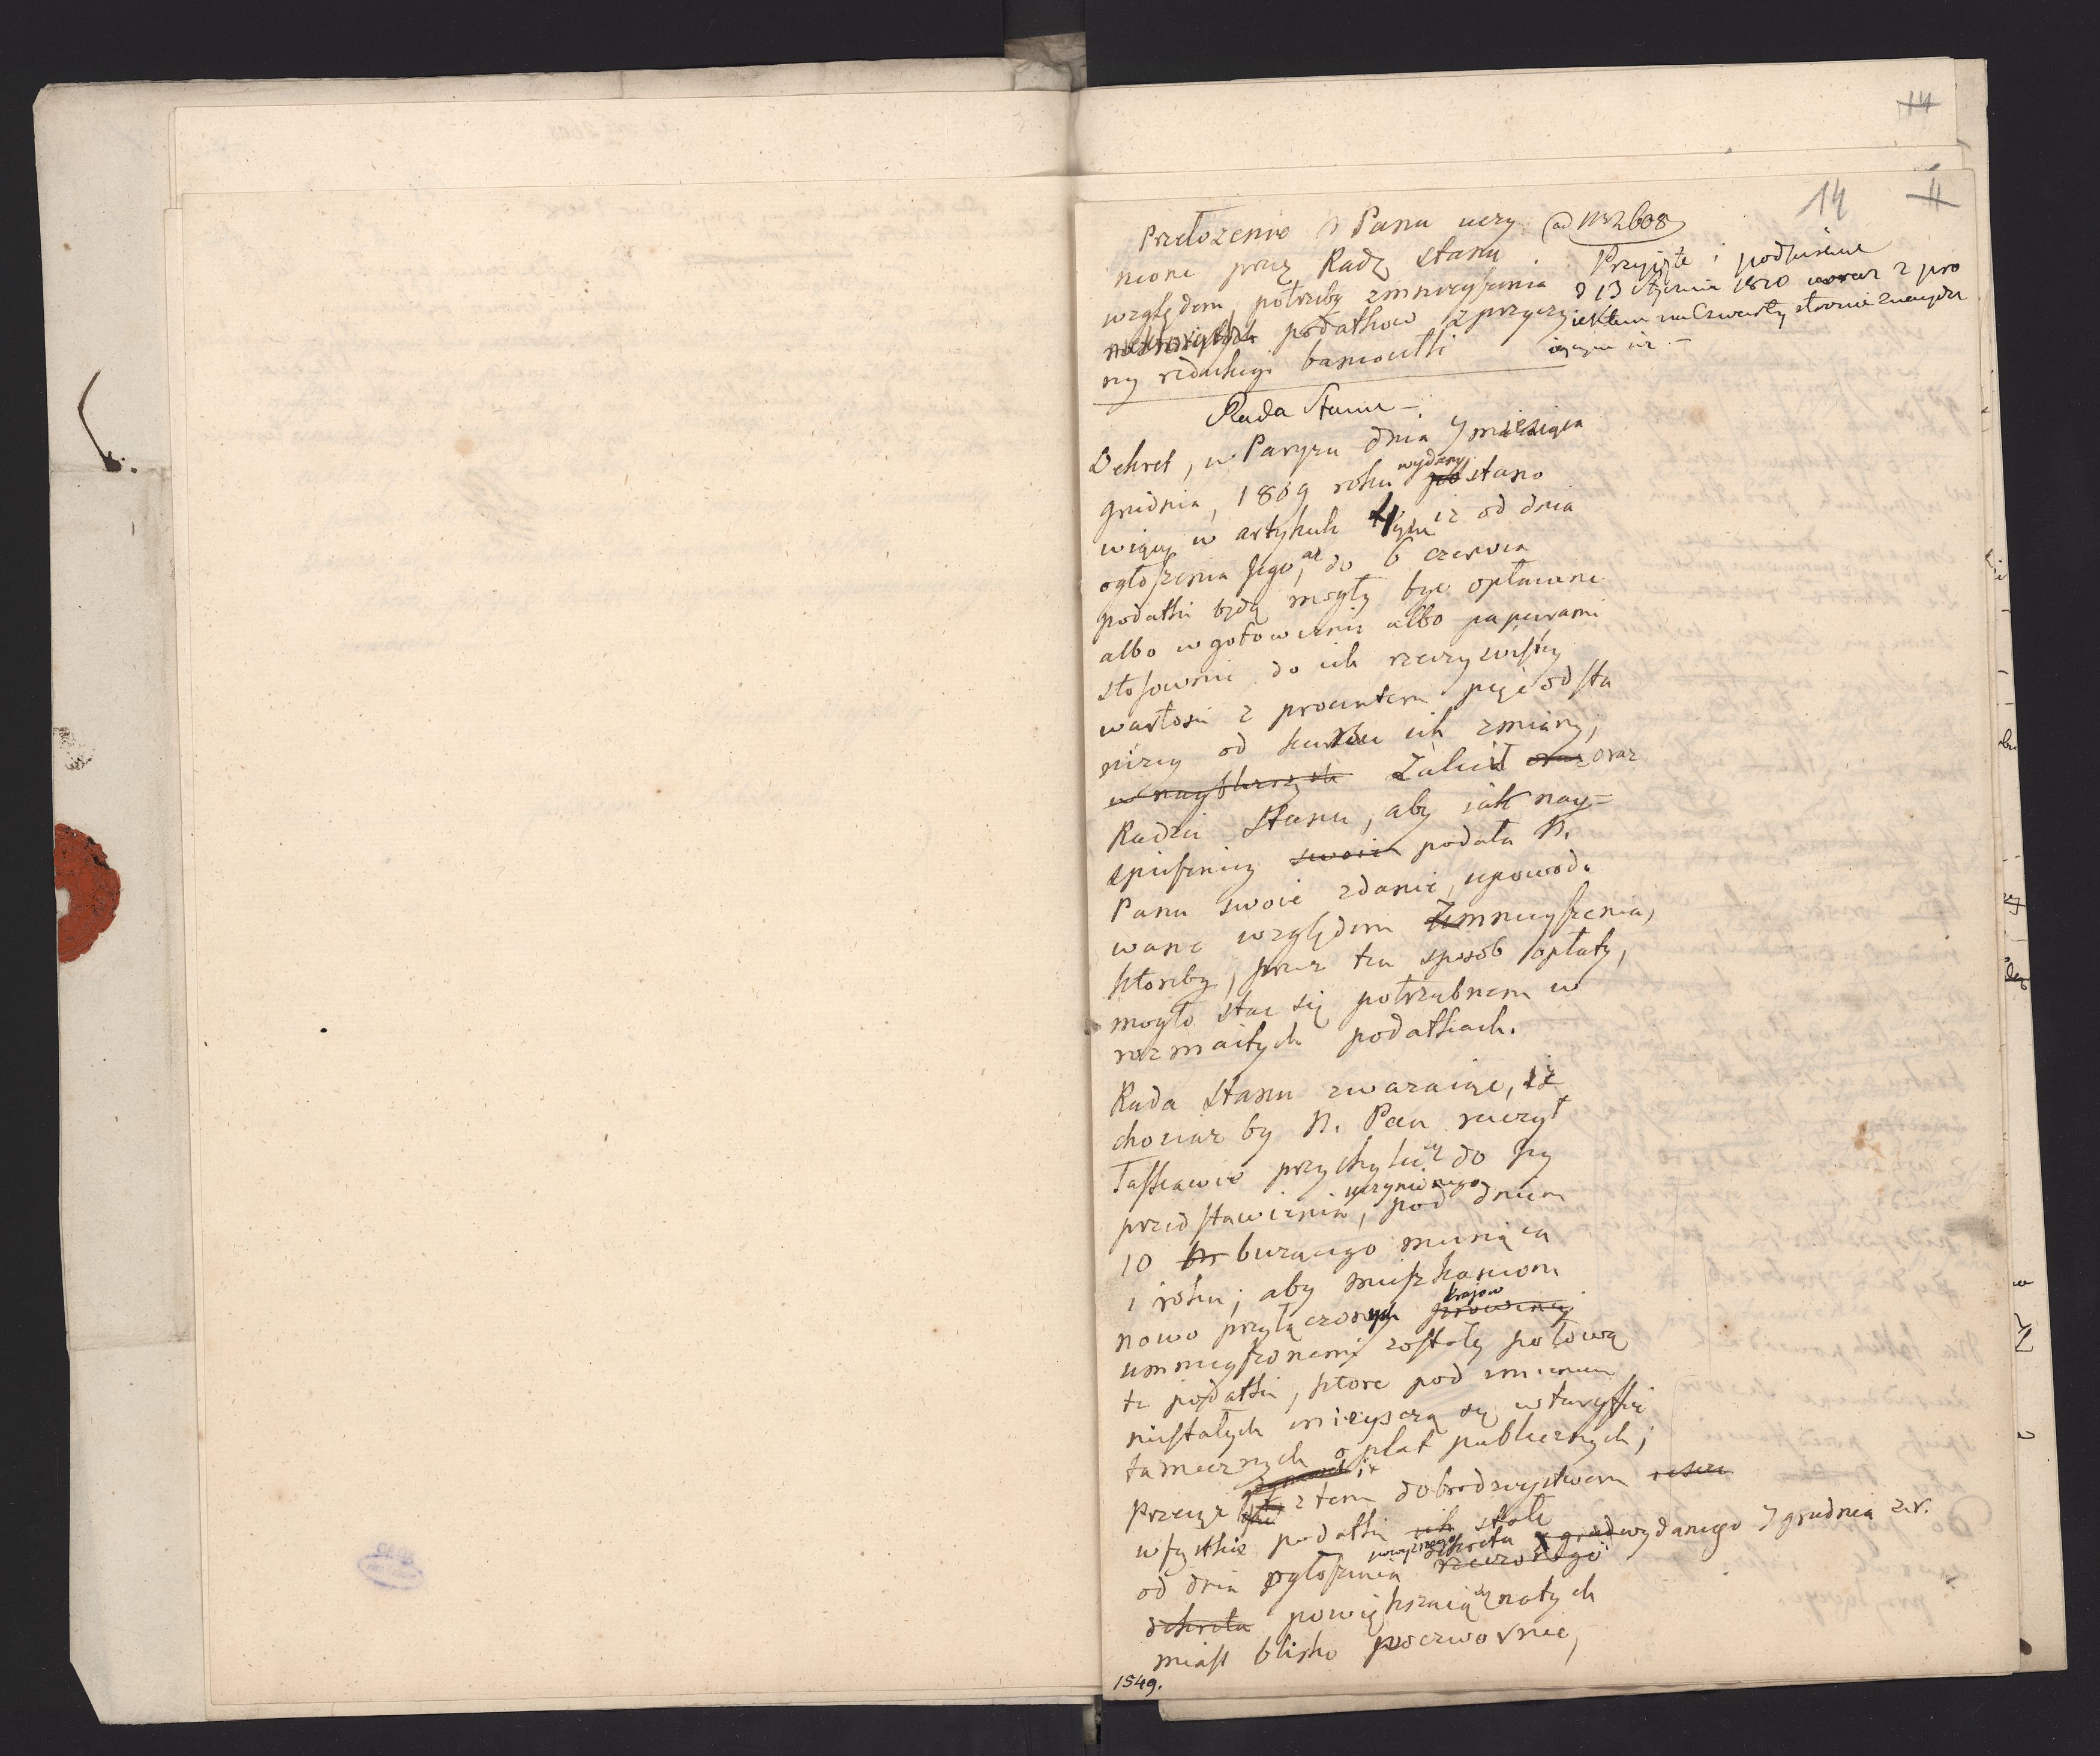 14
14
11
ad Nr 2608
Przełożenie N Panu uczy
nione przez Radę Stanu
względem potrzeby zmnieyszenia
podatkow z przyczy
ny redukcyi bankowey
Przyięte i podpisane
d 13 stycznia 1810 wraz z pro
iektem na czwartey stronie znaydu
iącym się. –
Rada Stanu –
Dekret, w Paryżu dnia 7 miesiąca
grudnia, 1809 roku wydany stano
wiący w artykule 4tym iż od dnia
ogłoszenia jego, aż do 6 czerwca
podatki będą mogły być opłacane
albo w gotowiznie albo papierami
stosownie do ich rzeczywistey
wartosci z procentem pięć od sta
niżey od kursu ich zmiany;
w naystarszych Zalecił oraz oraz
Radzie Stanu, aby iak nay=
spieszniey swoie podała N.
Panu swoie zdanie, upowodo
wane względem Zmnieyszenia,
ktoreby, przez ten sposób opłaty,
mogło stać się potrzebnem w
rozmaitych podatkach.
Rada Stanu zważaiąc, iż
chociaż by N. Pan raczył
łaskawie przychylić się do jey
przedstawienia, uczynionego pod dniem
10 bieżącego miesiąca
i roku; aby mieszkancom
nowo przyłączonych krajow prowincyi
umnieyszonemi zostały połową
te podatki, ktore pod imieniem
niestałych mieyszczą się w taryffie
tamecznych opłat publicznych;
przecież iż z tem dobrodzieystwem
wszystkie podatki ich stałe
od dnia ogłoszenia powyższego dekreta wydanego 7 grudnia z.r.
dekretu powiększaią się natych
miast blisko poczwornie,
1549.